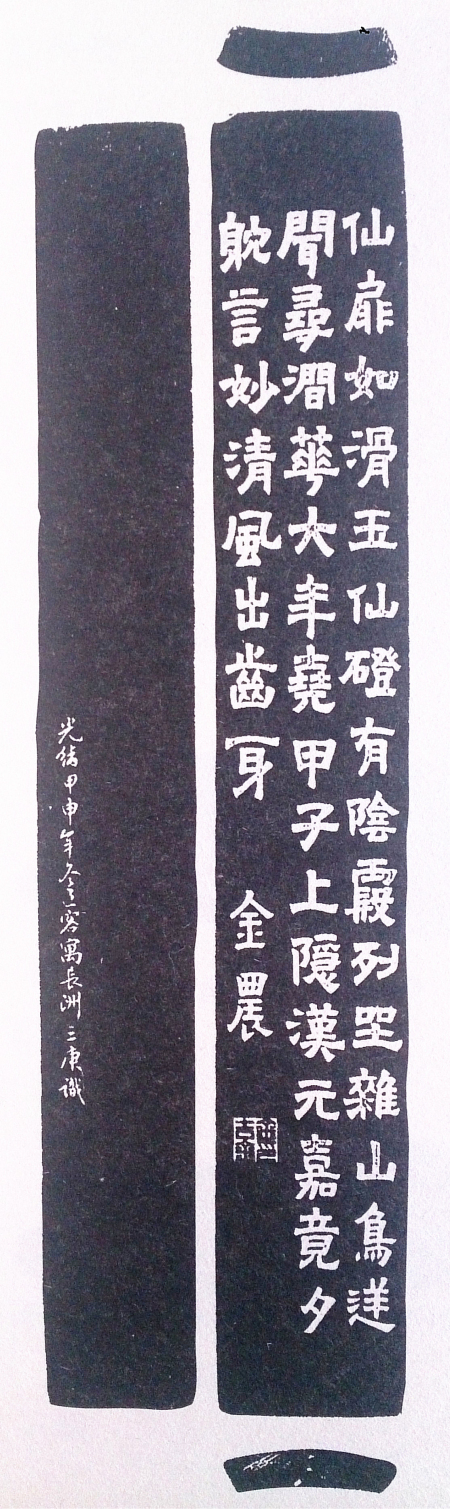 仙扉如滑玉仙磴有陰霞列坐雜山鳥送
聞尋澗華大年堯甲子上隱漢元嘉竟夕
躭言妙清風出齒牙
金農
光緒甲申年冬客寓長洲三庚識